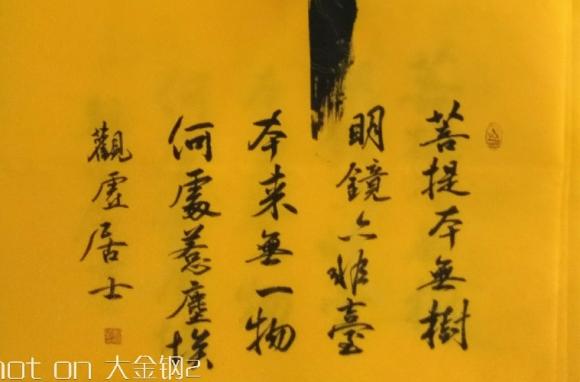 菩提本無樹
明鏡亦非臺
本来無一物
何處惹塵埃
觀虚居士
hot on 大金钢2